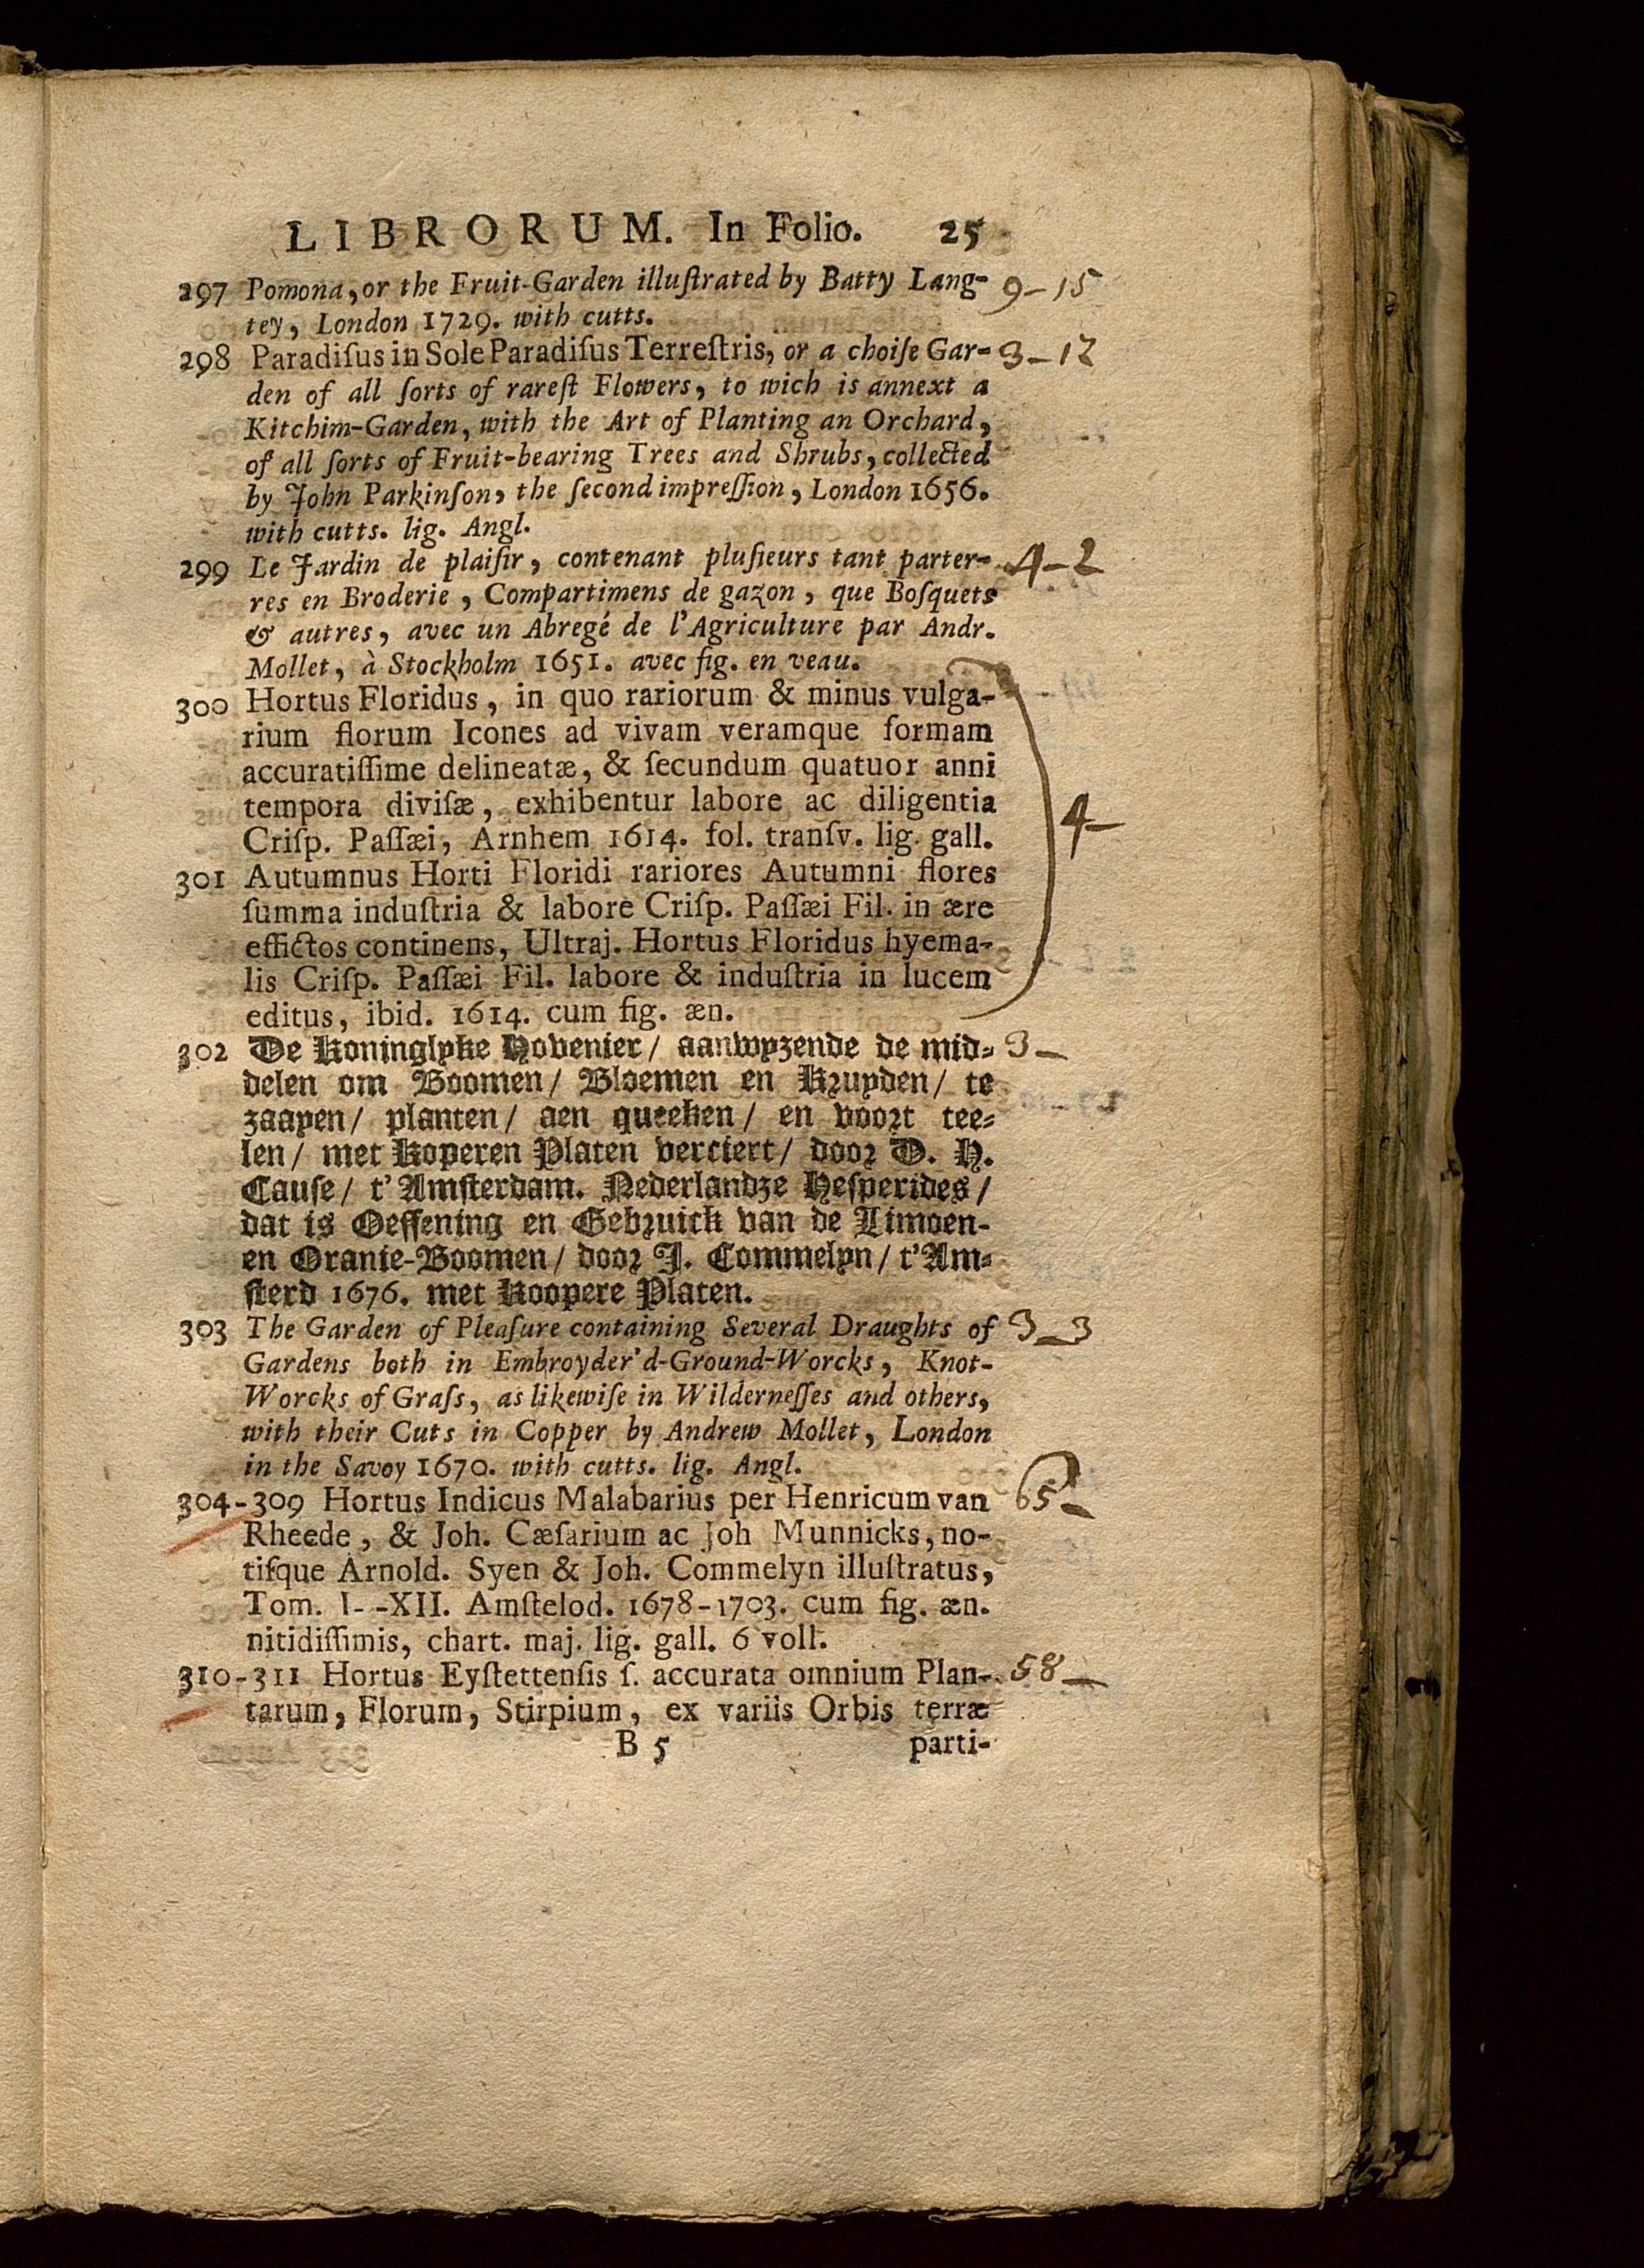 LIBRORUM. In Folio. 25
297 Pomona, or the Fruit-Garden illuſtrated by Batty Lang- 9-15
tey, London 1729. with cutts.
298 Paradiſus in Sole Paradiſus Terreſtris, or a choiſe Gar- 3-12
den of all ſorts of rareſt Flowers, to wich is annext a
Kitchim-Garden, with the Art of Planting an Orchard,
of all ſorts of Fruit-bearing Trees and Shrubs, collected
by John Parkinſon, the ſecond impreſſion, London 1656.
with cutts. lig. Angl.
299 Le Jardin de plaiſir, contenant pluſieurs tant parter- 4-2
res en Broderie, Compartimens de gazon, que Boſquets
& autres, avec un Abregé de l'Agriculture par Andr.
Mollet, à Stockholm 1651. avec fig. en veau.
300 Hortus Floridus, in quo rariorum & minus vulga-
rium florum Icones ad vivam veramque formam
accuratiſſime delineatæ, & ſecundum quatuor anni
tempora diviſæ, exhibentur labore ac diligentia 4-
Criſp. Paſſæi, Arnhem 1614. fol. tranſv. lig. gall.
301 Autumnus Horti Floridi rariores Autumni flores
ſumma induſtria & labore Criſp. Paſſæi Fil. in ære
effictos continens, Ultraj. Hortus Floridus hyema-
lis Criſp. Paſſæi Fil. labore & induſtria in lucem
editus, ibid. 1614. cum fig. æn.
302 De Koninglyke Hovenier/ aanwyzende de mid- 3-
delen om Boomen/ Bloemen en Kruyden/ te
zaayen/ planten/ aen queeken/ en voort tee-
len/ met Koperen Platen verciert/ door D. H.
Cauſe/ t'Amſterdam. Nederlandze Heſperides/
dat is Oeffening en Gebruick van de Limoen-
en Oranie-Boomen/ door J. Commelyn/ t'Am-
ſterd 1676. met Koopere Platen.
303 The Garden of Pleaſure containing Several Draughts of 3-3
Gardens both in Embroyder'd-Ground-Worcks, Knot-
Worcks of Graſs, as likewiſe in Wilderneſſes and others,
with their Cuts in Copper by Andrew Mollet, London
in the Savoy 1670. with cutts. lig. Angl.
304-309 Hortus Indicus Malabarius per Henricum van 65-
Rheede, & Joh. Cæſarium ac Joh Munnicks, no-
tiſque Arnold. Syen & Joh. Commelyn illuſtratus,
Tom. I--XII. Amſtelod. 1678-1703. cum fig. æn.
nitidiſſimis, chart. maj. lig. gall. 6 voll.
310-311 Hortus Eyſtettenſis ſ. accurata omnium Plan- 58-
tarum, Florum, Stirpium, ex variis Orbis terræ
B 5 parti-